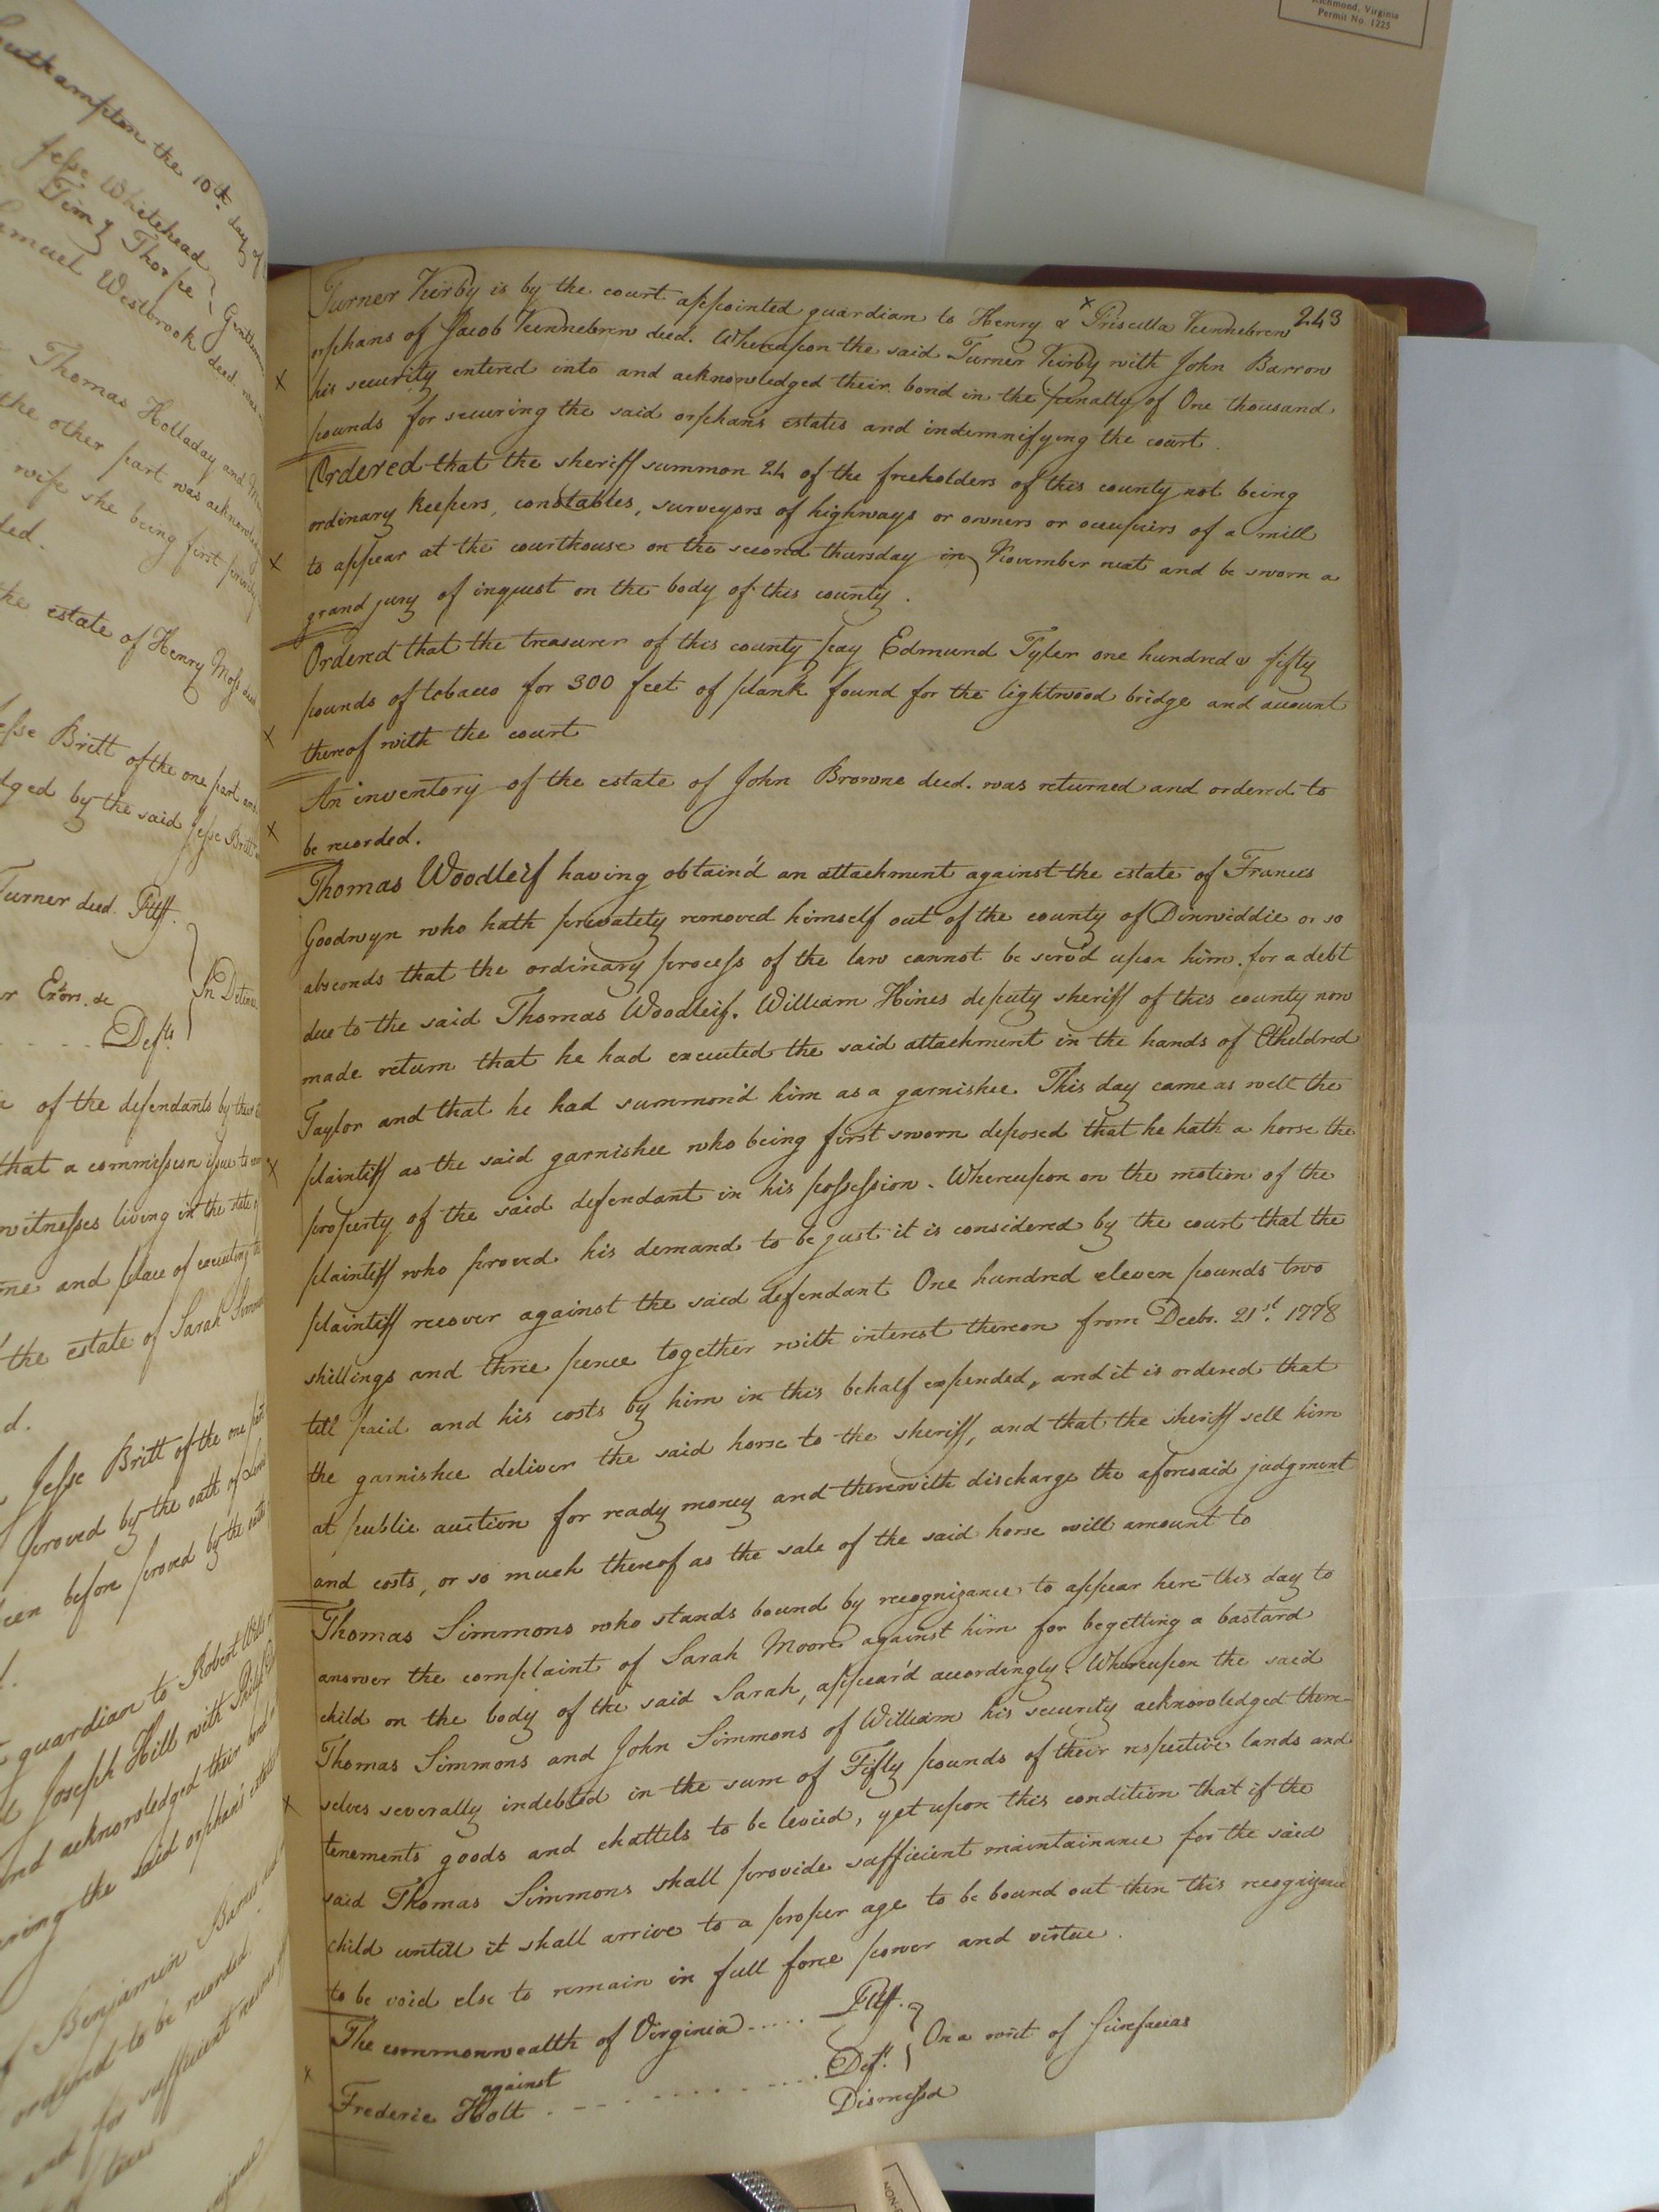 Richmond, Virginia
Permit No. 1225
Southampton the 10th. day of
Jesse Whitehead
Timy Thorpe } Gentlemen
Samuel Westbrook deed. was
Thomas Holladay and
the other part was acknowledged
wife she being first privily
ded.
the estate of Henry Moss deed
Jesse Britt of the one part and
dged by the said Jesse Britt
Turner deed. Pltff.
Exors. &c
Defts
In Detinue
of the defendants by their
that a commission issue to
witnesses living in the state
me and place of executing
the estate of Sarah
d.
Jesse Britt of the one part
proved by the oath of
een before proved by the
guardian to Robert
Joseph Hill with
and acknowledged their bond
uring the said orphan's estate
Benjamin Barnes
ordered to be recorded
and for sufficient reasons
243
Turner Kirby is by the court appointed guardian to Henry & Priscilla Kinnebrew
orphans of Jacob Kinnebrew deed. Whereupon the said Turner Kirby with John Barrow
his security entered into and acknowledged their bond in the penalty of One thousand
pounds for securing the said orphans estates and indemnifying the court.
Ordered that the sheriff summon 24 of the freeholders of this county not being
ordinary keepers, constables, surveyors of highways or owners or occupiers of a mill
to appear at the courthouse on the second thursday in November next and be sworn a
grand jury of inquest on the body of this county.
Ordered that the treasurer of this county pay Edmund Tyler one hundred & fifty
pounds of tobacco for 300 feet of plank found for the lightwood bridge and account
thereof with the court
An inventory of the estate of John Browne deed. was returned and ordered to
be recorded.
Thomas Woodleif having obtain'd an attachment against the estate of Francis
Goodwyn who hath privately removed himself out of the county of Dinwiddie or so
absconds that the ordinary process of the law cannot be serv'd upon him. for a debt
due to the said Thomas Woodleif. William Hines deputy sheriff of this county now
made return that he had executed the said attachment in the hands of Etheldred
Taylor and that he had summon'd him as a garnishee. This day came as well the
plaintiff as the said garnishee who being first sworn deposed that he hath a horse the
property of the said defendant in his possession. Whereupon on the motion of the
plaintiff who proved his demand to be just it is considered by the court that the
plaintiff recover against the said defendant One hundred eleven pounds two
shillings and three pence together with interest thereon from Decbr. 21st. 1778
till paid and his costs by him in this behalf expended, and it is ordered that
the garnishee deliver the said horse to the sheriff, and that the sheriff sell him
at public auction for ready money and therewith discharge the aforesaid judgment
and costs, or so much thereof as the sale of the said horse will amount to
Thomas Simmons who stands bound by recognizance to appear here this day to
answer the complaint of Sarah Moore against him for begetting a bastard
child on the body of the said Sarah, appear'd accordingly. Whereupon the said
Thomas Simmons and John Simmons of William his security acknowledged them-
selves severally indebted in the sum of Fifty pounds of their respective lands and
tenements goods and chattels to be levied, yet upon this condition that if the
said Thomas Simmons shall provide sufficient maintainance for the said
child untill it shall arrive to a proper age to be bound out then this recognizance
to be void else to remain in full force power and virtue.
The commonwealth of Virginia ..... Pltff. }
against } On a writ of Scirefacias
Frederic Holt ............ Deft. }
Dismissd